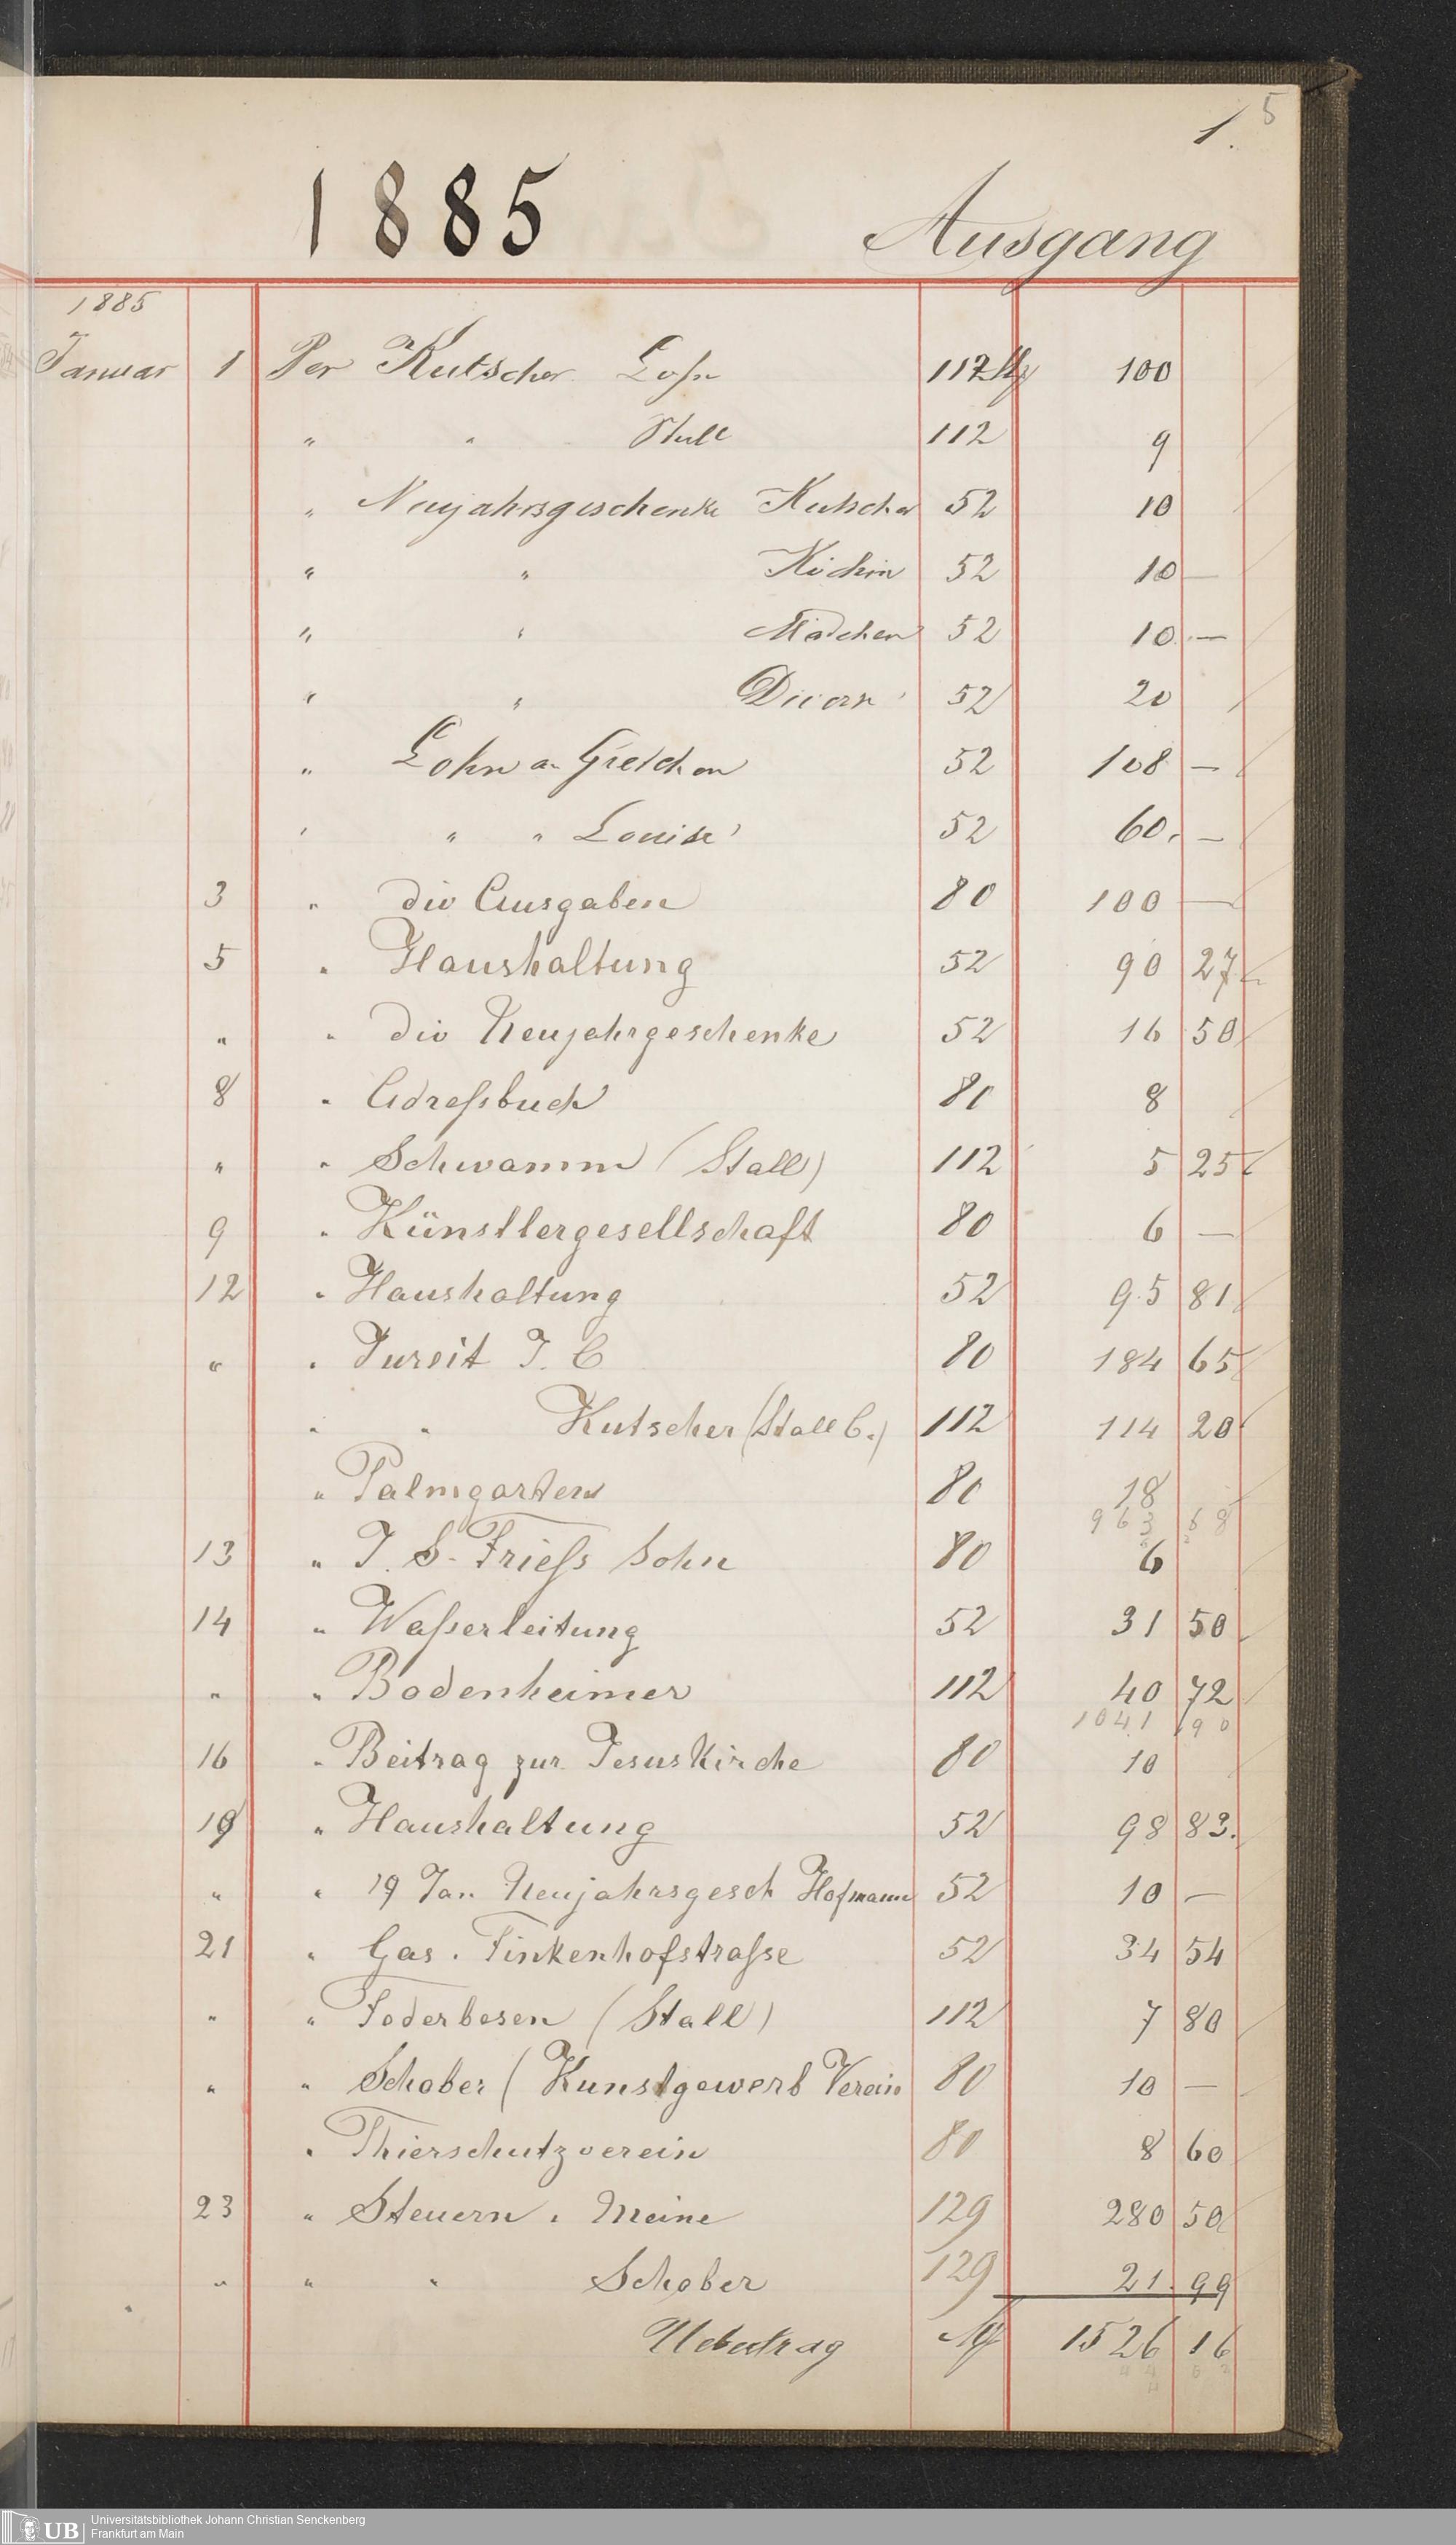 5
1.
1885 Ausgang
1885
Januar 1 Per Kutscher Lohn 112 M 100
" " Stall 112 9
" Neujahrsgeschenke Kutscher 52 10
" " Köchin 52 10 —
" " Mädchen 52 10 . —
" " 52 20
" Lohn a Gretchen 52 108 —
" " " Louise 52 60 . —
3 " div Ausgaben 80 100 —
5 " Haushaltung 52 90 27
" " div Neujahrgeschenke 52 16 50
8 " Adreßbuch 80 8
" " Schwamm (Stall) 112 5 25
9 " Künstlergesellschaft 80 6 —
12 " Haushaltung 52 95 81
" " Jureit J. C 80 184 65
" " Kutscher (Stall C.) 112 114 20
" Palmgarten 80 18
963 68
13 " J. S. Frieß Sohn 80 6
14 " Waßerleitung 52 31 50
" " Bodenheimer 112 40 72
1041 90
16 " Beitrag zur Jesuskirche 80 10
19 " Haushaltung 52 98 83.
" " 19 Jan. Neujahrsgesch Hofmann 52 10 —
21 " Gas . Finkenhofstraße 52 34 54
" " Foderbesen (Stall) 112 7 80
" " Schober (Kunstgewerb Verein 80 10 —
" Thierschutzverein 80 8 60
23 " Steuern . Meine 129 280 50
" " " Schober 129 21 . 99
Uebertrag M 1526 16
UB Universitätsbibliothek Johann Christian Senckenberg
Frankfurt am Main